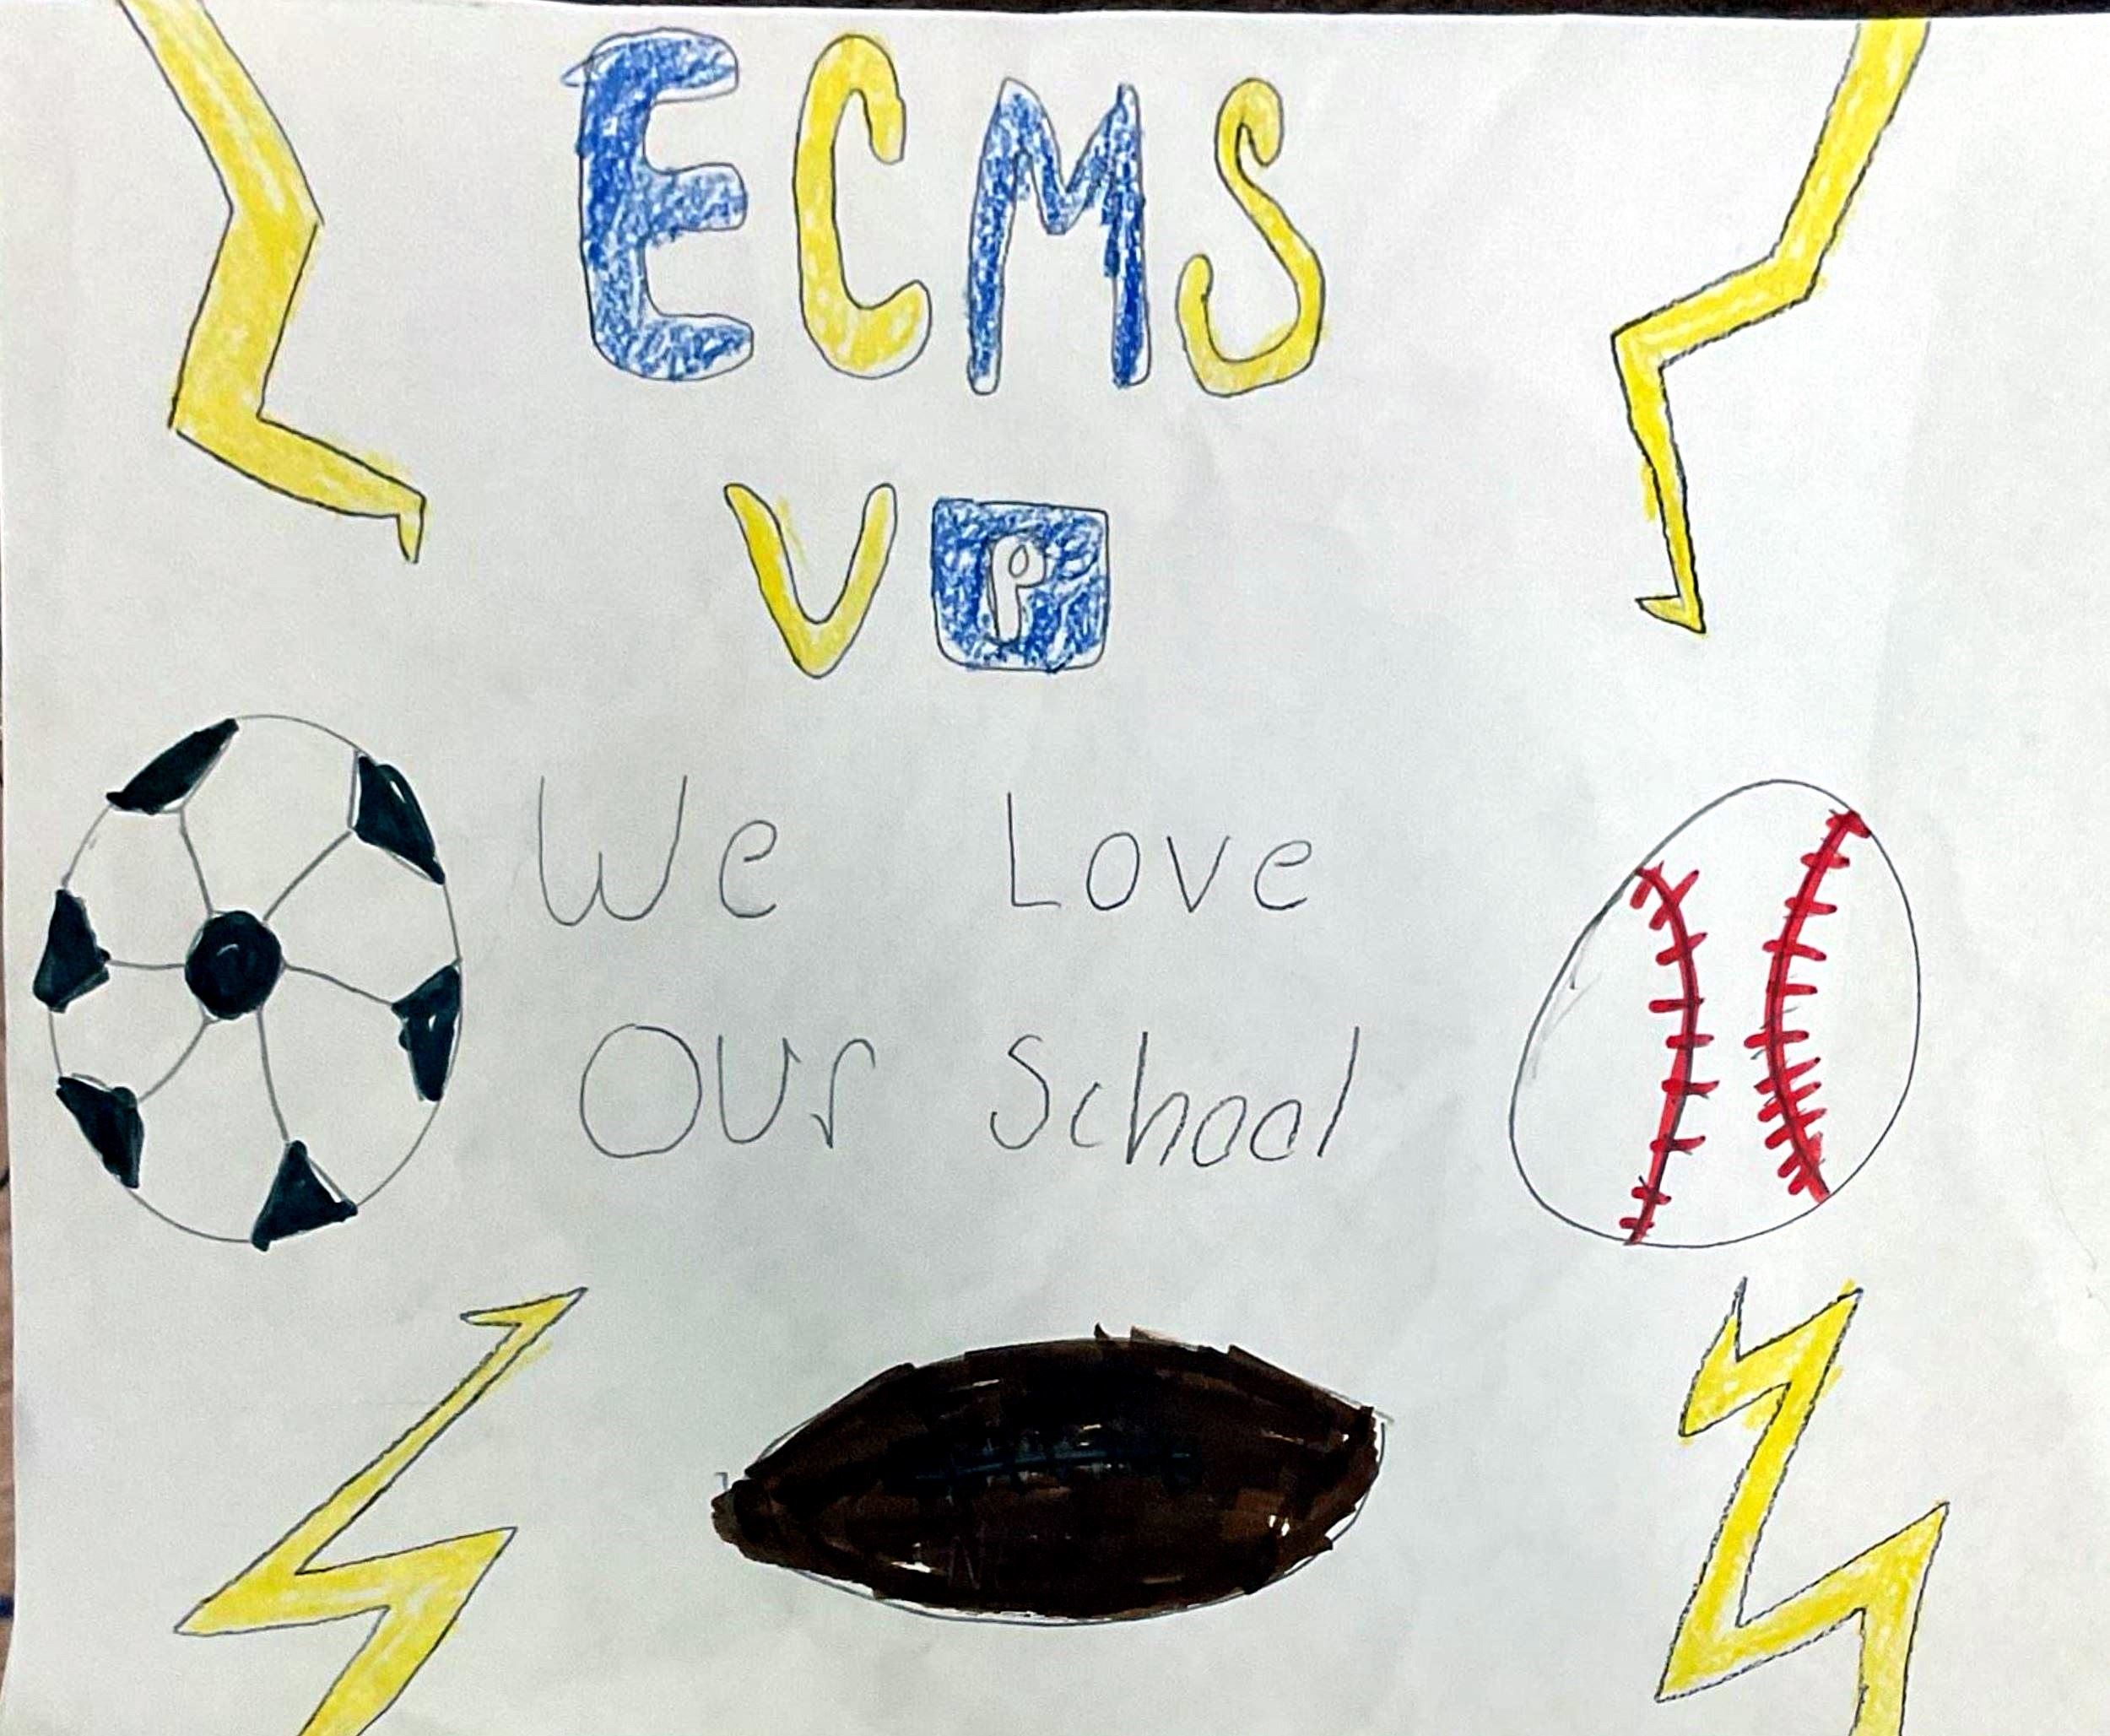 ECMS
VP
We Love
OUr School